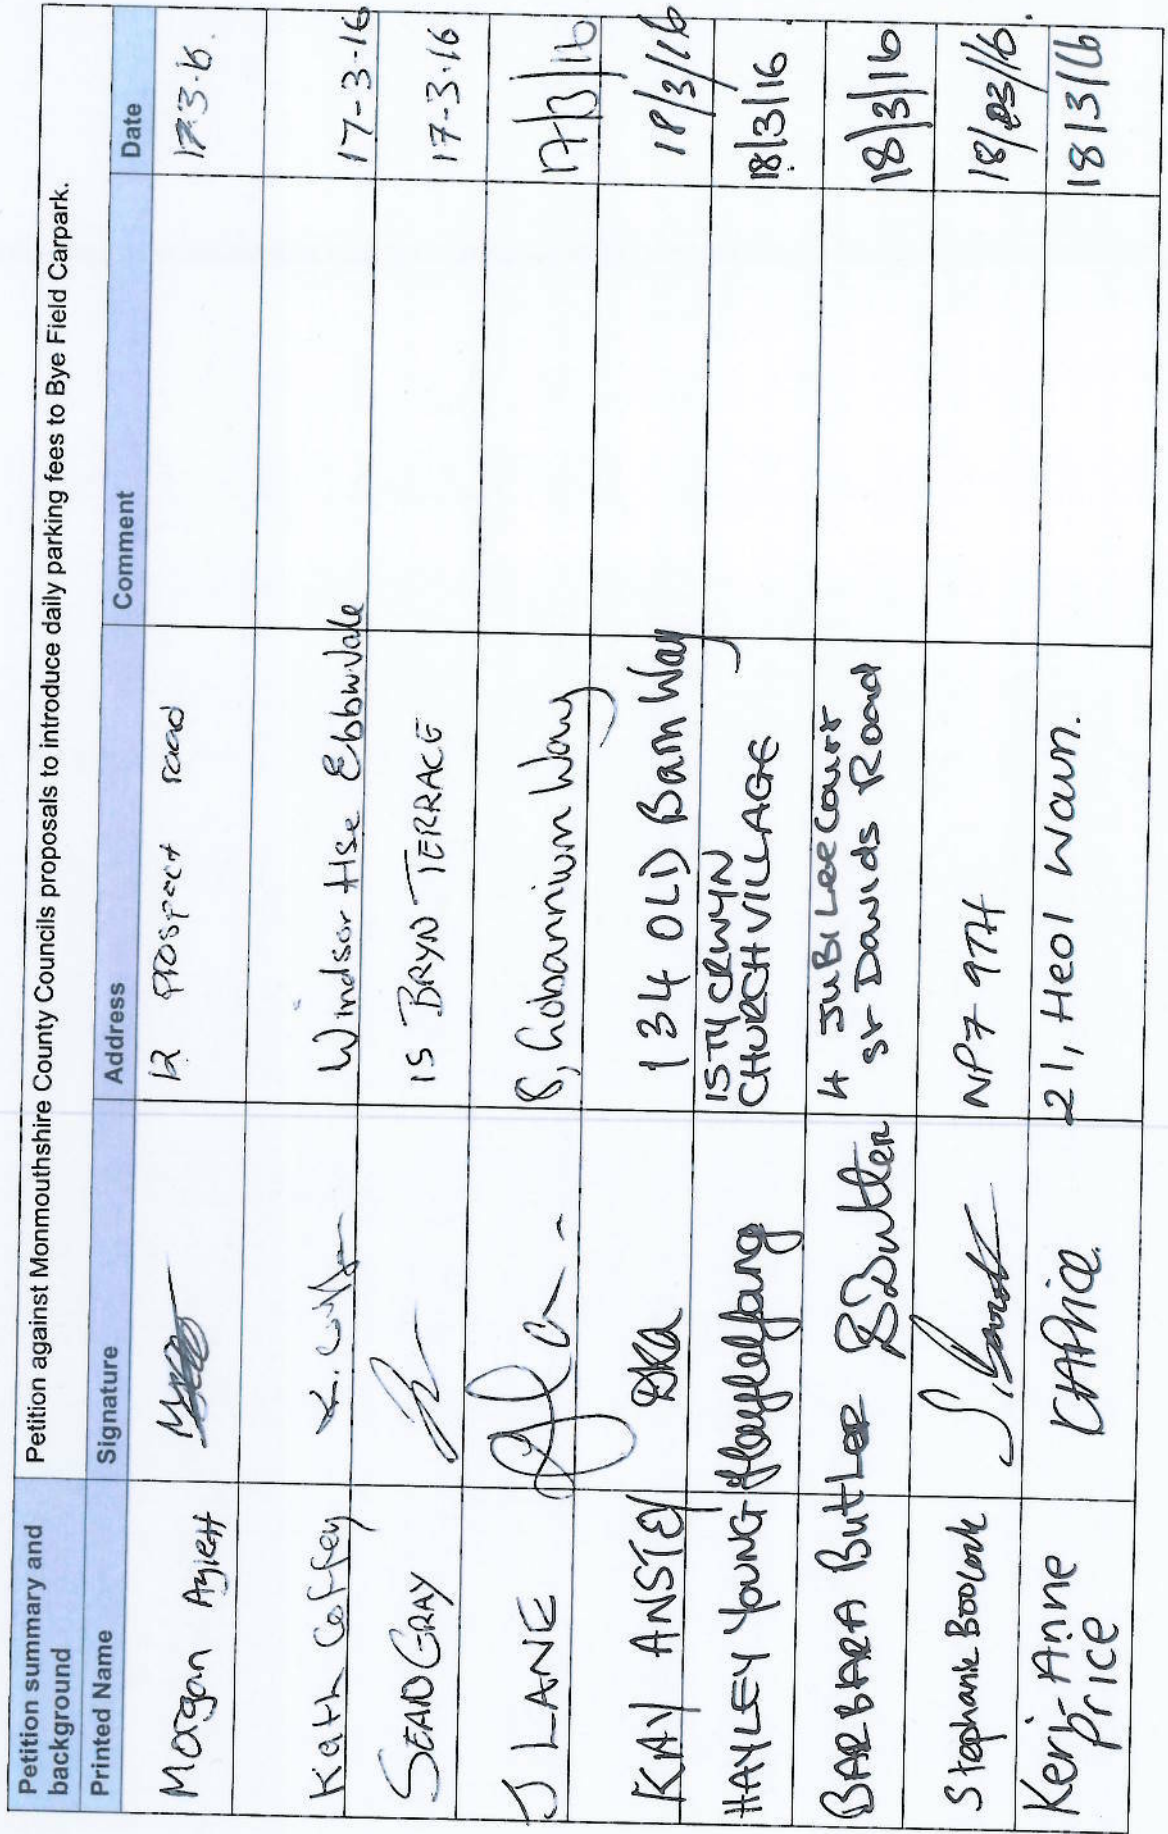 Petition summary and background
Petition against Monmouthshire County Councils proposals to introduce daily parking fees to Bye Field Carpark.
Printed Name Signature Address Comment Date
Morgan 12 Prospect road 17.3.6.
Kath Coffey K. Coffey Windsor Hse Ebbw Vale 17-3-16
SEAN GRAY 15 BRYN TERRACE 17-3.16
J LANE 8, Gobannium Way 17/3/16
KAY ANSTEY 134 OLD Barn Way 18/3/16
HAYLEY YOUNG 15 TY CRWYN
CHURCH VILLAGE 18/3/16
BARBARA ButLER BButler 4 JuBiLee Court
St Davids Road 18/3/16
Stephanie NP7 9TH 18/03/16.
Keri-Anne
Price KAPrice. 21, Heol Waun. 18/3/16